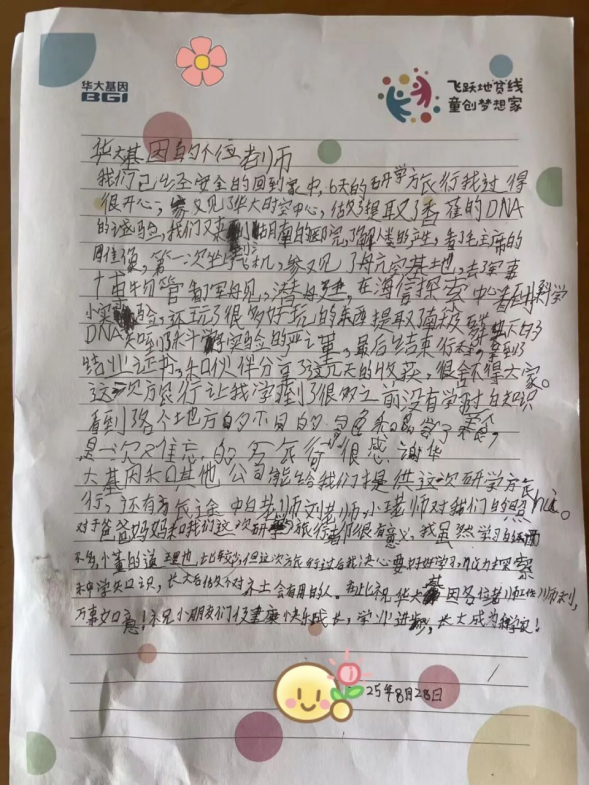 华大基因
BGI
飞跃地贫线
童创梦想家
华大基因的各位老师
我们已经安全的回到家中,6天的研学旅行我过得
很开心,参观了华大时空中心,做了提取了香蕉的DNA
的试验,我们又来到了湖南的医院,了解人类的产生,看了毛主席的
雕像,第一次坐飞机,参观了航天基地,去军事
博物管看了军舰,潜艇,在海信探索中心看到科学
小实验,还玩了很多好玩的东西提取
DNA知道了科学实验的严谨,最后结束行李拿到了
结业证书,和伙伴分享了这几天的收获,很舍不得大家。
这次旅行让我学到了很多之前没有学过的知识
看到了各个地方的不同的
是一次难忘的旅行很感谢华
大基因和其他公司能给我们提供这次研学旅
行,还有老师刘老师,小老师对我们的照顾。
对于爸爸妈妈和我们这次研学旅行都很有意义,我虽然学习的
不多,小懂的道理也比较少,但这次旅行过后我决心要好好学习,努力去探索
科学知识,长大后做个对社会有用的人。在此祝华大基因各位老师工作顺利,
万事如意!祝小朋友们健康快乐成长,学业进步,长大成为科学家!
25年8月28日